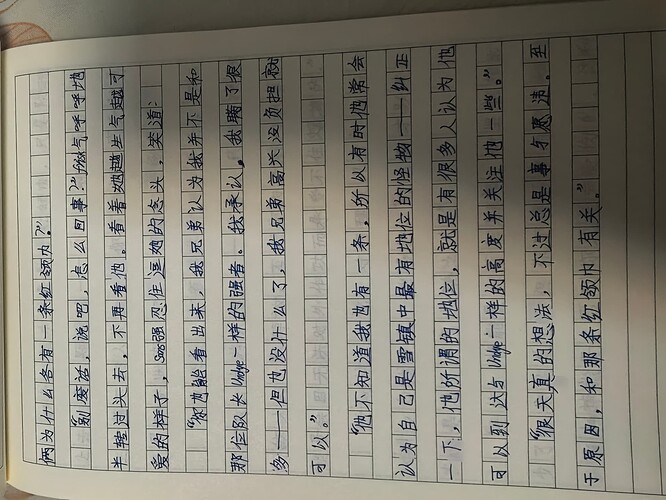 俩为什么各有一条红领巾?”
“别废话,说吧,怎么回事?”frisk气呼呼地
半转过头去,不再看他。看着她越生气越可
爱的样子,Sans强忍住逗她的念头,笑道:
“你也能看出来,我兄弟认为我并不是和
那位队长Undyne一样的强者。我承认,我瞒了很
多——但也没什么了,我兄弟高兴没负担就
可以。”
“他不知道我也有一条,所以有时他常会
认为自己是雪镇中最有地位的怪物——纠正
一下,他所谓的地位,就是有很多人认为他
可以到达与Undyne一样的高度并关注他一些。”
“很天真的想法,不过总是事与愿违。至
于原因,和那条红领巾有关。”